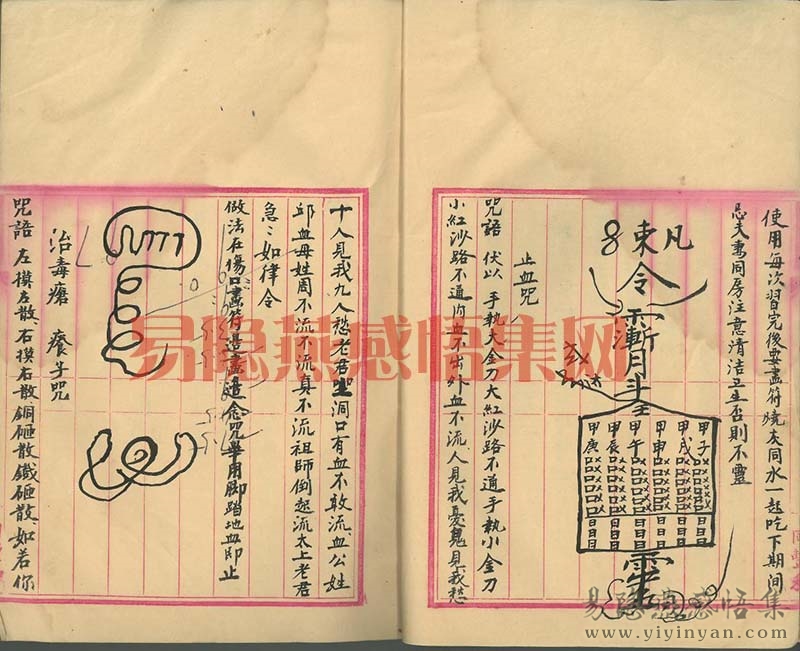 使用每次習完後要畫符燒灰同水一起吃下期間
忌夫妻同房注意清洁卫生否則不靈
凡
東
令
斗
甲子
甲戌
甲申
甲午
甲辰
甲
靈
止血咒
咒語 伏以 手執大金刀大紅沙路不通手執小金刀
小紅沙路不通內血不出外血不流人見我憂鬼見我愁
十人見我九人愁老君聖洞口有血不敢流血公姓
邱血母姓周不流不流真不流祖師倒起流太上老君
急〻如律令
做法在傷口畫符邊畫邊念咒畢用脚踏地血即止
治毒瘡 癢子咒
咒語 左摸左散右摸右散銅砸散鐵砸散如若你
易隐燕感悟集网
易隐燕感悟集
www.yiyinyan.com